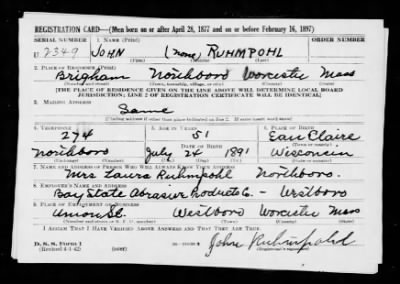 REGISTRATION CARD—(Men born on or after April 28, 1877 and on or before February 16, 1897)
SERIAL NUMBER 1. NAME (Print) ORDER NUMBER
U 2349 JOHN (none) RUHMPOHL
2. PLACE OF RESIDENCE (Print)
Brigham Northboro Worcester Mass
[THE PLACE OF RESIDENCE GIVEN ON THE LINE ABOVE WILL DETERMINE LOCAL BOARD
JURISDICTION; LINE 2 OF REGISTRATION CERTIFICATE WILL BE IDENTICAL]
3. MAILING ADDRESS
Same
[Mailing address if other than place indicated on line 2. If same insert word same]
4. TELEPHONE 5. AGE IN YEARS 6. PLACE OF BIRTH
274 51 Eau Claire
DATE OF BIRTH
Northboro July 24 1891 Wisconsin
7. NAME AND ADDRESS OF PERSON WHO WILL ALWAYS KNOW YOUR ADDRESS
Mrs Laura Ruhmpohl Northboro.
8. EMPLOYER'S NAME AND ADDRESS
Bay State Abrasive Products Co. - Westboro
9. PLACE OF EMPLOYMENT OR BUSINESS
Union St. Westboro Worcester Mass
I AFFIRM THAT I HAVE VERIFIED ABOVE ANSWERS AND THAT THEY ARE TRUE.
D. S. S. Form 1
(Revised 4-1-42) (over) John Ruhmpohl